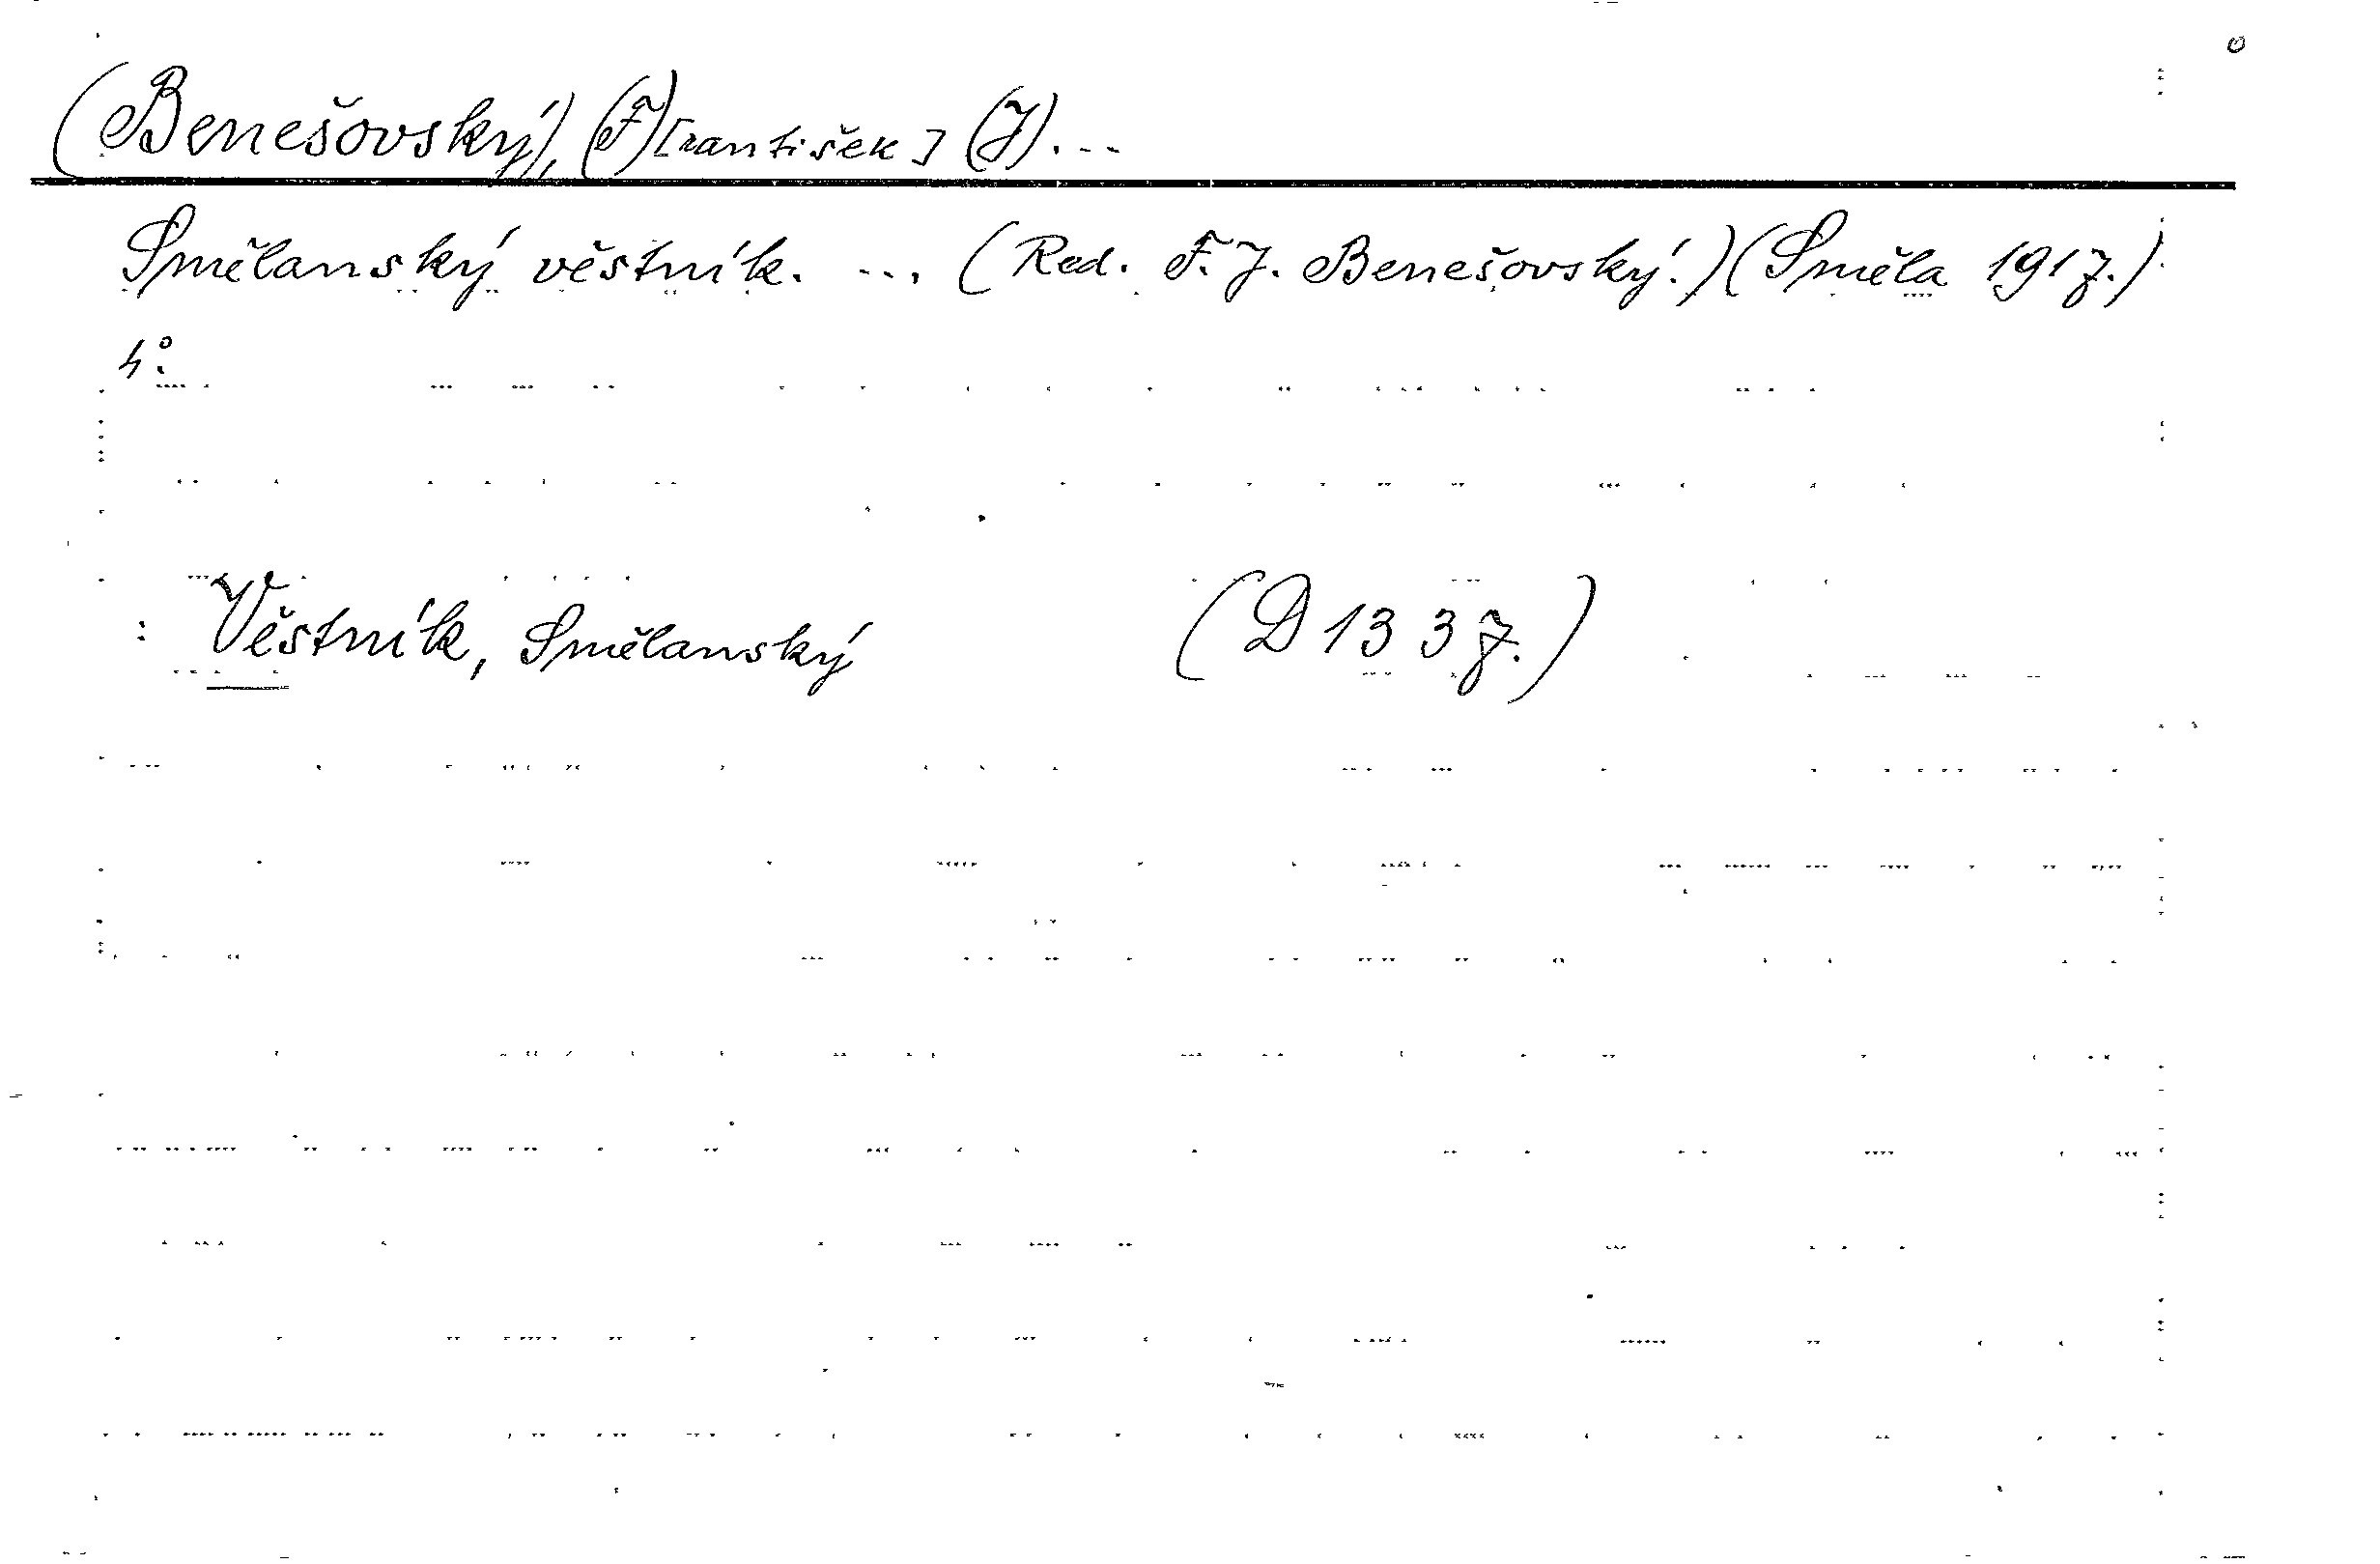 (Benešovský), (F)[rantišek] (J). ..
Smělanský věstník. ... (Red. F. J. Benešovský.) (Směla 1917.)
4°.
: Věstník, Smělanský (D 1337.)